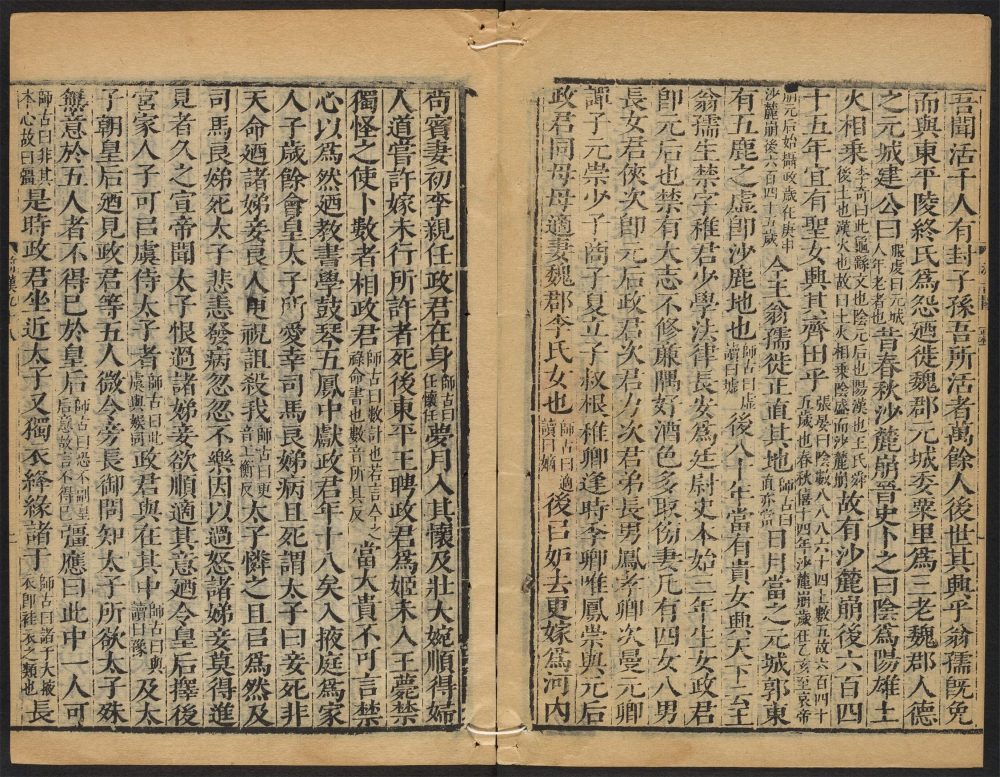 吾聞活千人有封子孫吾所活者萬餘人後世其興乎翁孺旣免
而與東平陵終氏爲怨廼徙魏郡元城委粟里爲三老魏郡人德
之元城建公曰服虔曰元城人年老者也昔春秋沙麓崩晉史卜之曰陰爲陽雄土
火相乗李奇曰此龜繇文也陰元后也陽漢也王氏舜後土也漢火也故曰土火相乗陰盛而沙麓崩故有沙麓崩後六百四
十五年宜有聖女興其齊田乎張晏曰陰數八八八六十四土數五故六百四十五歲也春秋僖十四年沙麓崩歲在乙亥至哀帝
崩元后始攝政歲在庚申沙麓崩後六百四十五歲今王翁孺徙正直其地師古曰直亦當日月當之元城郭東
有五鹿之虛卽沙鹿地也師古曰虛讀曰墟後八十年當有貴女興天下云至王
翁孺生禁字稚君少學法律長安爲廷尉史本始三年生女政君
卽元后也禁有大志不修廉隅好酒色多取傍妻凡有四女八男
長女君俠次卽元后政君次君力次君弟長男鳳孝卿次曼元卿
譚子元崇少子商子夏立子叔根稚卿逢時季卿唯鳳崇與元后
政君同母母適妻魏郡李氏女也師古曰適讀曰嫡後㠯妒去更嫁爲河內
苟賓妻初李親任政君在身師古曰任懷任夢月入其懷及壯大婉順得婦
人道嘗許嫁未行所許者死後東平王聘政君爲姬未入王薨禁
獨怪之使卜數者相政君師古曰數計也若言今之祿命書也數音所具反當大貴不可言禁
心以爲然廼教書學鼓琴五鳳中獻政君年十八矣入掖庭爲家
人子歲餘會皇太子所愛幸司馬良娣病且死謂太子曰妾死非
天命廼諸娣妾良人更祝詛殺我師古曰更音工衡反太子憐之且㠯爲然及
司馬良娣死太子悲恚發病忽忽不樂因以過怒諸娣妾莫得進
見者久之宣帝聞太子恨過諸娣妾欲順適其意廼令皇后擇後
宮家人子可㠯虞侍太子者師古曰此虞與娛同政君與在其中師古曰與讀曰豫及太
子朝皇后廼見政君等五人微令旁長御問知太子所欲太子殊
無意於五人者不得已於皇后師古曰恐不副皇后意故言不得已彊應曰此中一人可
師古曰非其本心故曰彊是時政君坐近太子又獨衣絳緣諸于師古曰諸于大掖衣卽袿衣之類也長